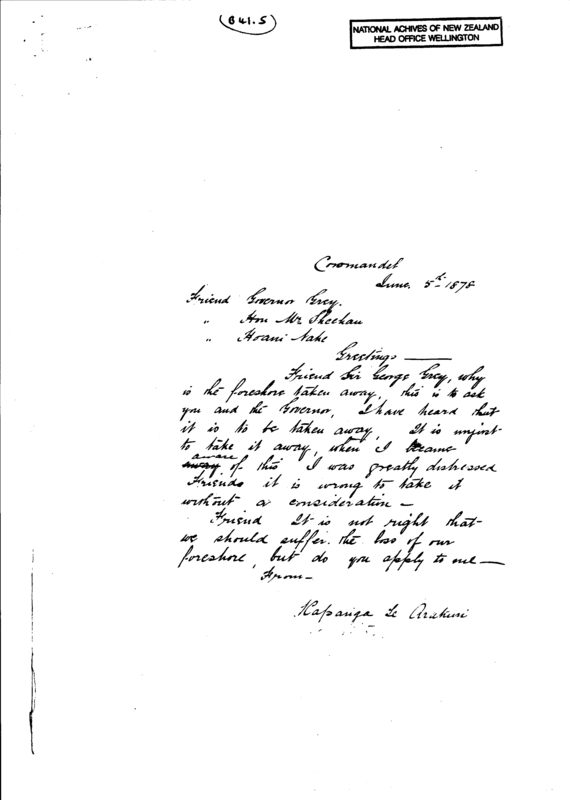 (B 41.5)
NATIONAL ACHIVES OF NEW ZEALAND
HEAD OFFICE WELLINGTON
Coromandel
June. 5th 1878
Friend Governor Grey.
" Hon Mr Sheehan
" Hoani Nahe
Greetings —
Friend Sir George Grey, why
is the foreshore taken away, this is to ask
you and the Governor, I have heard that
it is to be taken away. It is unjust
to take it away, when I became
aware
away of this I was greatly distressed
Friends it is wrong to take it
without a consideration –
Friend It is not right that
we should suffer. the loss of our
foreshore, but do you apply to me —
From –
Te Arakuri